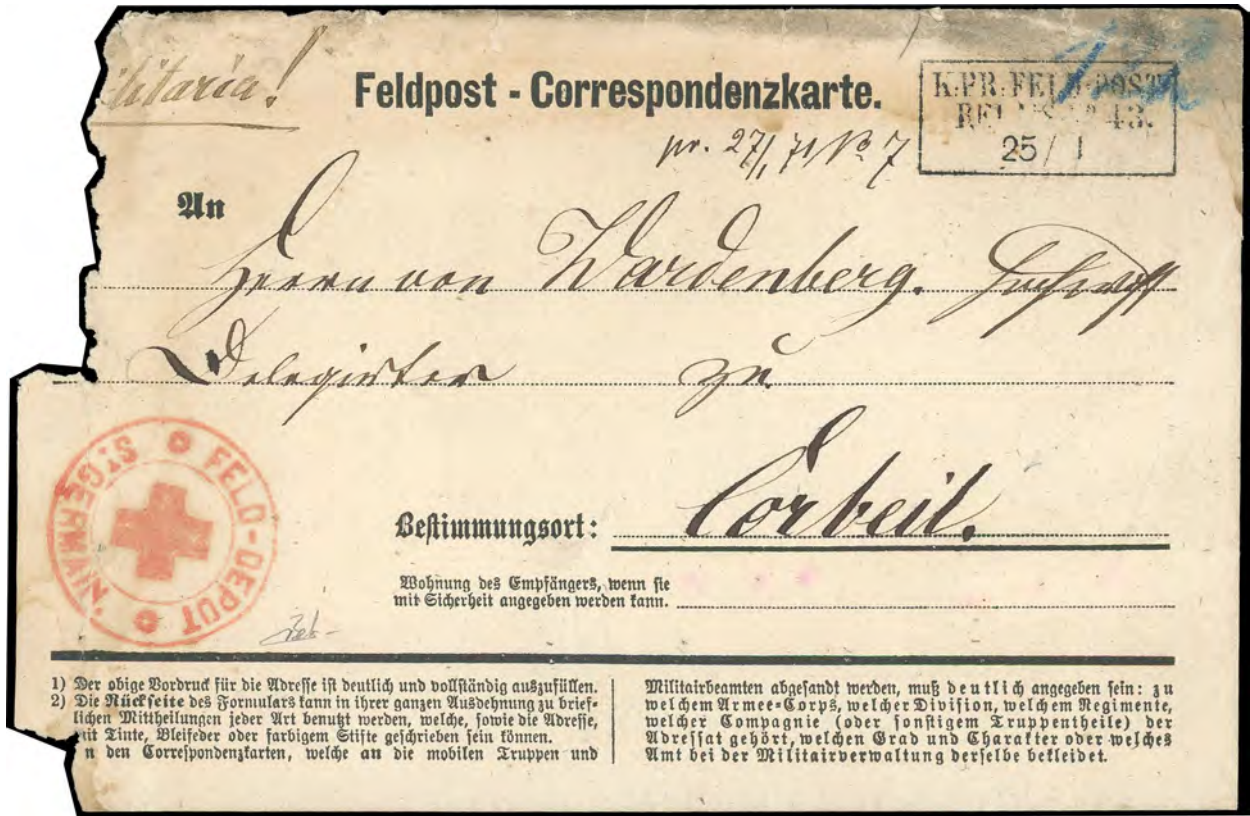 ilitaria!
Feldpost - Correspondenzkarte.
K.PR.FELD-POST
RELAIS No 43.
25/1
pr. 27/1 71 No 7
An
Herrn von Wardenberg.
Delegirter zu
Corbeil.
Bestimmungsort:
Wohnung des Empfängers, wenn sie
mit Sicherheit angegeben werden kann.
FELD-DEPUT
ST GERMAIN.
1) Der obige Vordruck für die Adresse ist deutlich und vollständig auszufüllen.
2) Die Rückseite des Formulars kann in ihrer ganzen Ausdehnung zu brief-
lichen Mittheilungen jeder Art benutzt werden, welche, sowie die Adresse,
mit Tinte, Bleifeder oder farbigem Stifte geschrieben sein können.
n den Correspondenzkarten, welche an die mobilen Truppen und
Militairbeamten abgesandt werden, muß deutlich angegeben sein: zu
welchem Armee-Corps, welcher Division, welchem Regimente,
welcher Compagnie (oder sonstigem Truppentheile) der
Adressat gehört, welchen Grad und Charakter oder welches
Amt bei der Militairverwaltung derselbe bekleidet.